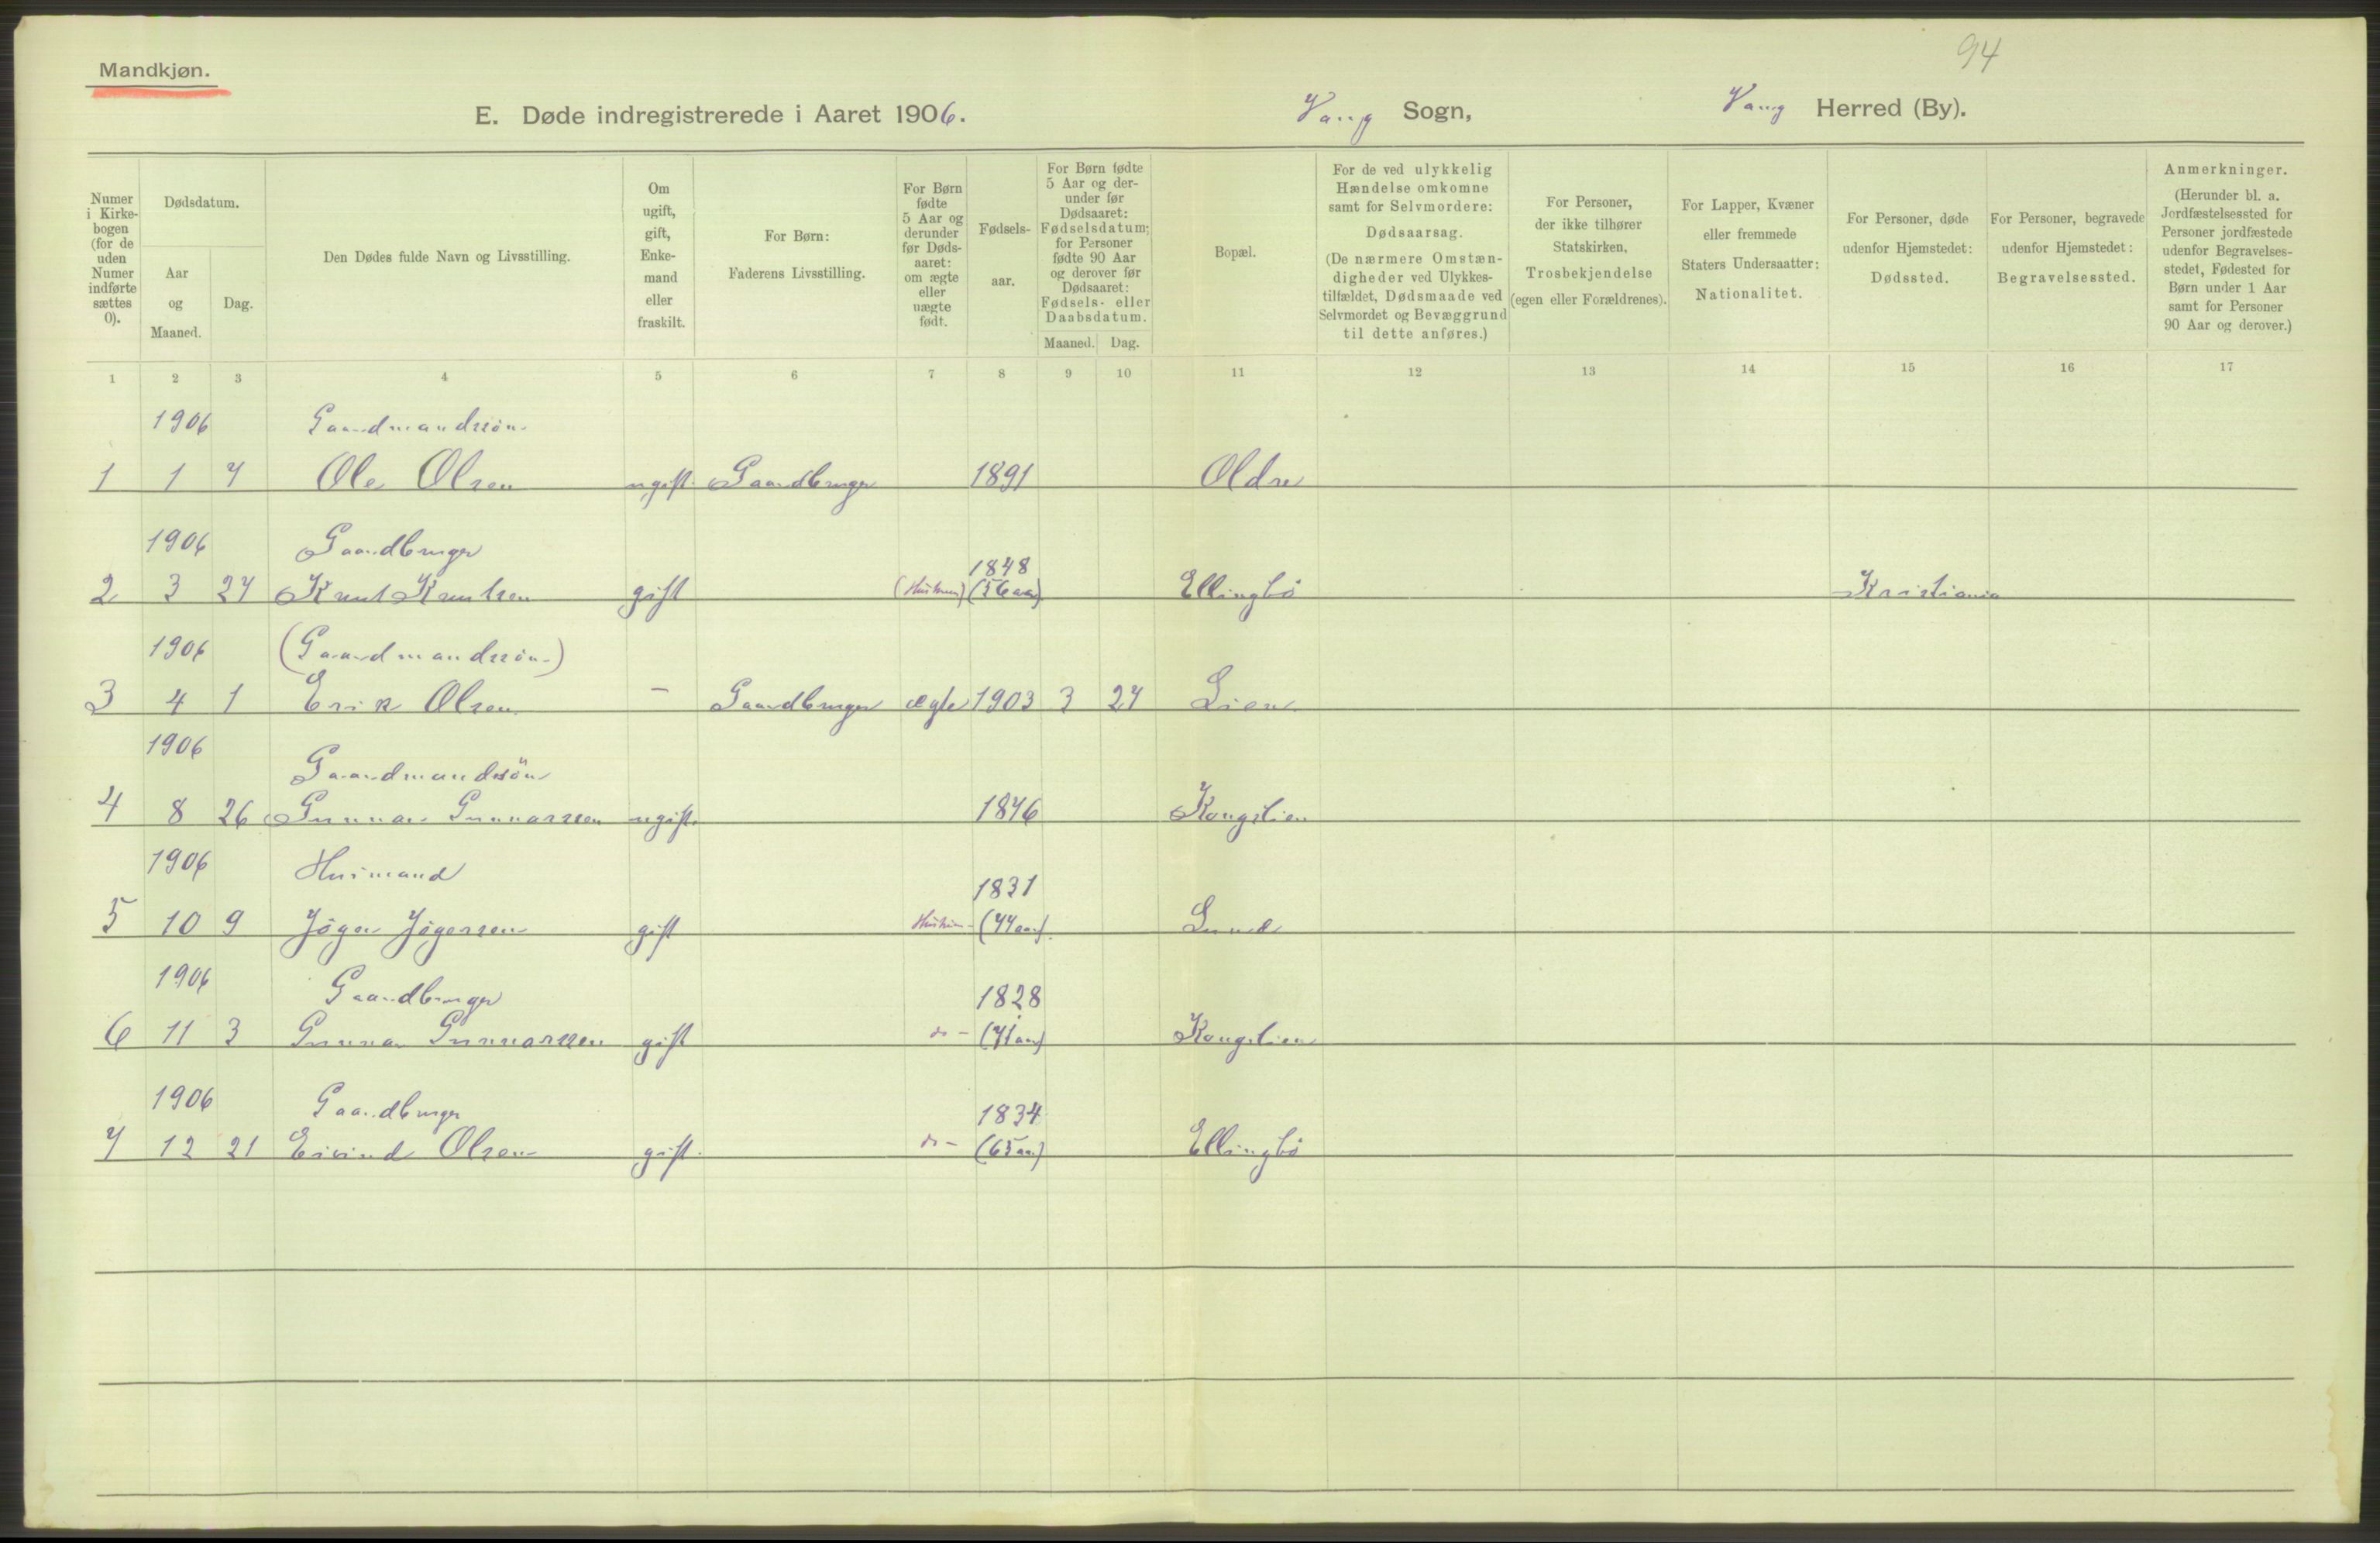 94
Mandkjøn.
E. Døde indregistrerede i Aaret 1906. Vang Sogn, Vang Herred (By).
Numer i Kirkebogen (for de uden Numer indførte sættes 0).
Dødsdatum.
Aar og Maaned.
Dag.
Den Dødes fulde Navn og Livsstilling.
Om ugift, gift, Enkemand eller fraskilt.
For Børn: Faderens Livsstilling.
For Børn fødte 5 Aar og derunder før Dødsaaret: om ægte eller uægte født.
Fødselsaar.
For Børn fødte 5 Aar og derunder før Dødsaaret: Fødselsdatum; for Personer fødte 90 Aar og derover før Dødsaaret: Fødsels- eller Daabsdatum.
Maaned. Dag.
Bopæl.
For de ved ulykkelig Hændelse omkomne samt for Selvmordere: Dødsaarsag. (De nærmere Omstændigheder ved Ulykkestilfældet, Dødsmaade ved Selvmordet og Bevæggrund til dette anføres.)
For Personer, der ikke tilhører Statskirken, Trosbekjendelse (egen eller Forældrenes).
For Lapper, Kvæner eller fremmede Staters Undersaatter: Nationalitet.
For Personer, døde udenfor Hjemstedet: Dødssted.
For Personer, begravede udenfor Hjemstedet: Begravelsessted.
Anmerkninger. (Herunder bl. a. Jordfæstelsessted for Personer jordfæstede udenfor Begravelsesstedet, Fødested for Børn under 1 Aar samt for Personer 90 Aar og derover.)
1 2 3 4 5 6 7 8 9 10 11 12 13 14 15 16 17
1906 Gaardmandssön
1 1 7 Ole Olsen ugift. Gaardbruger 1891 Oldre
1906 Gaardbruger 1848
2 3 27 Knut Knutsen gift (56 aar) Ellingbö Kristiania
1906 (Gaardmandssön)
3 4 1 Erik Olsen – Gaardbruger ægte 1903 3 27 Lien
1906 Gaardmandssön
4 8 26 Gunnar Gunnarssen ugift. 1846 Kongslien
1906 Husmand 1831
5 10 9 Jöger Jögersen gift (74 aar). Lund
1906 Gaardbruger 1828
6 11 3 Gunnar Gunnarssen gift do – (71 aar) Kongslien
1906 Gaardbruger 1834
7 12 21 Eivind Olsen gift. do – (65 aar) Ellingbö